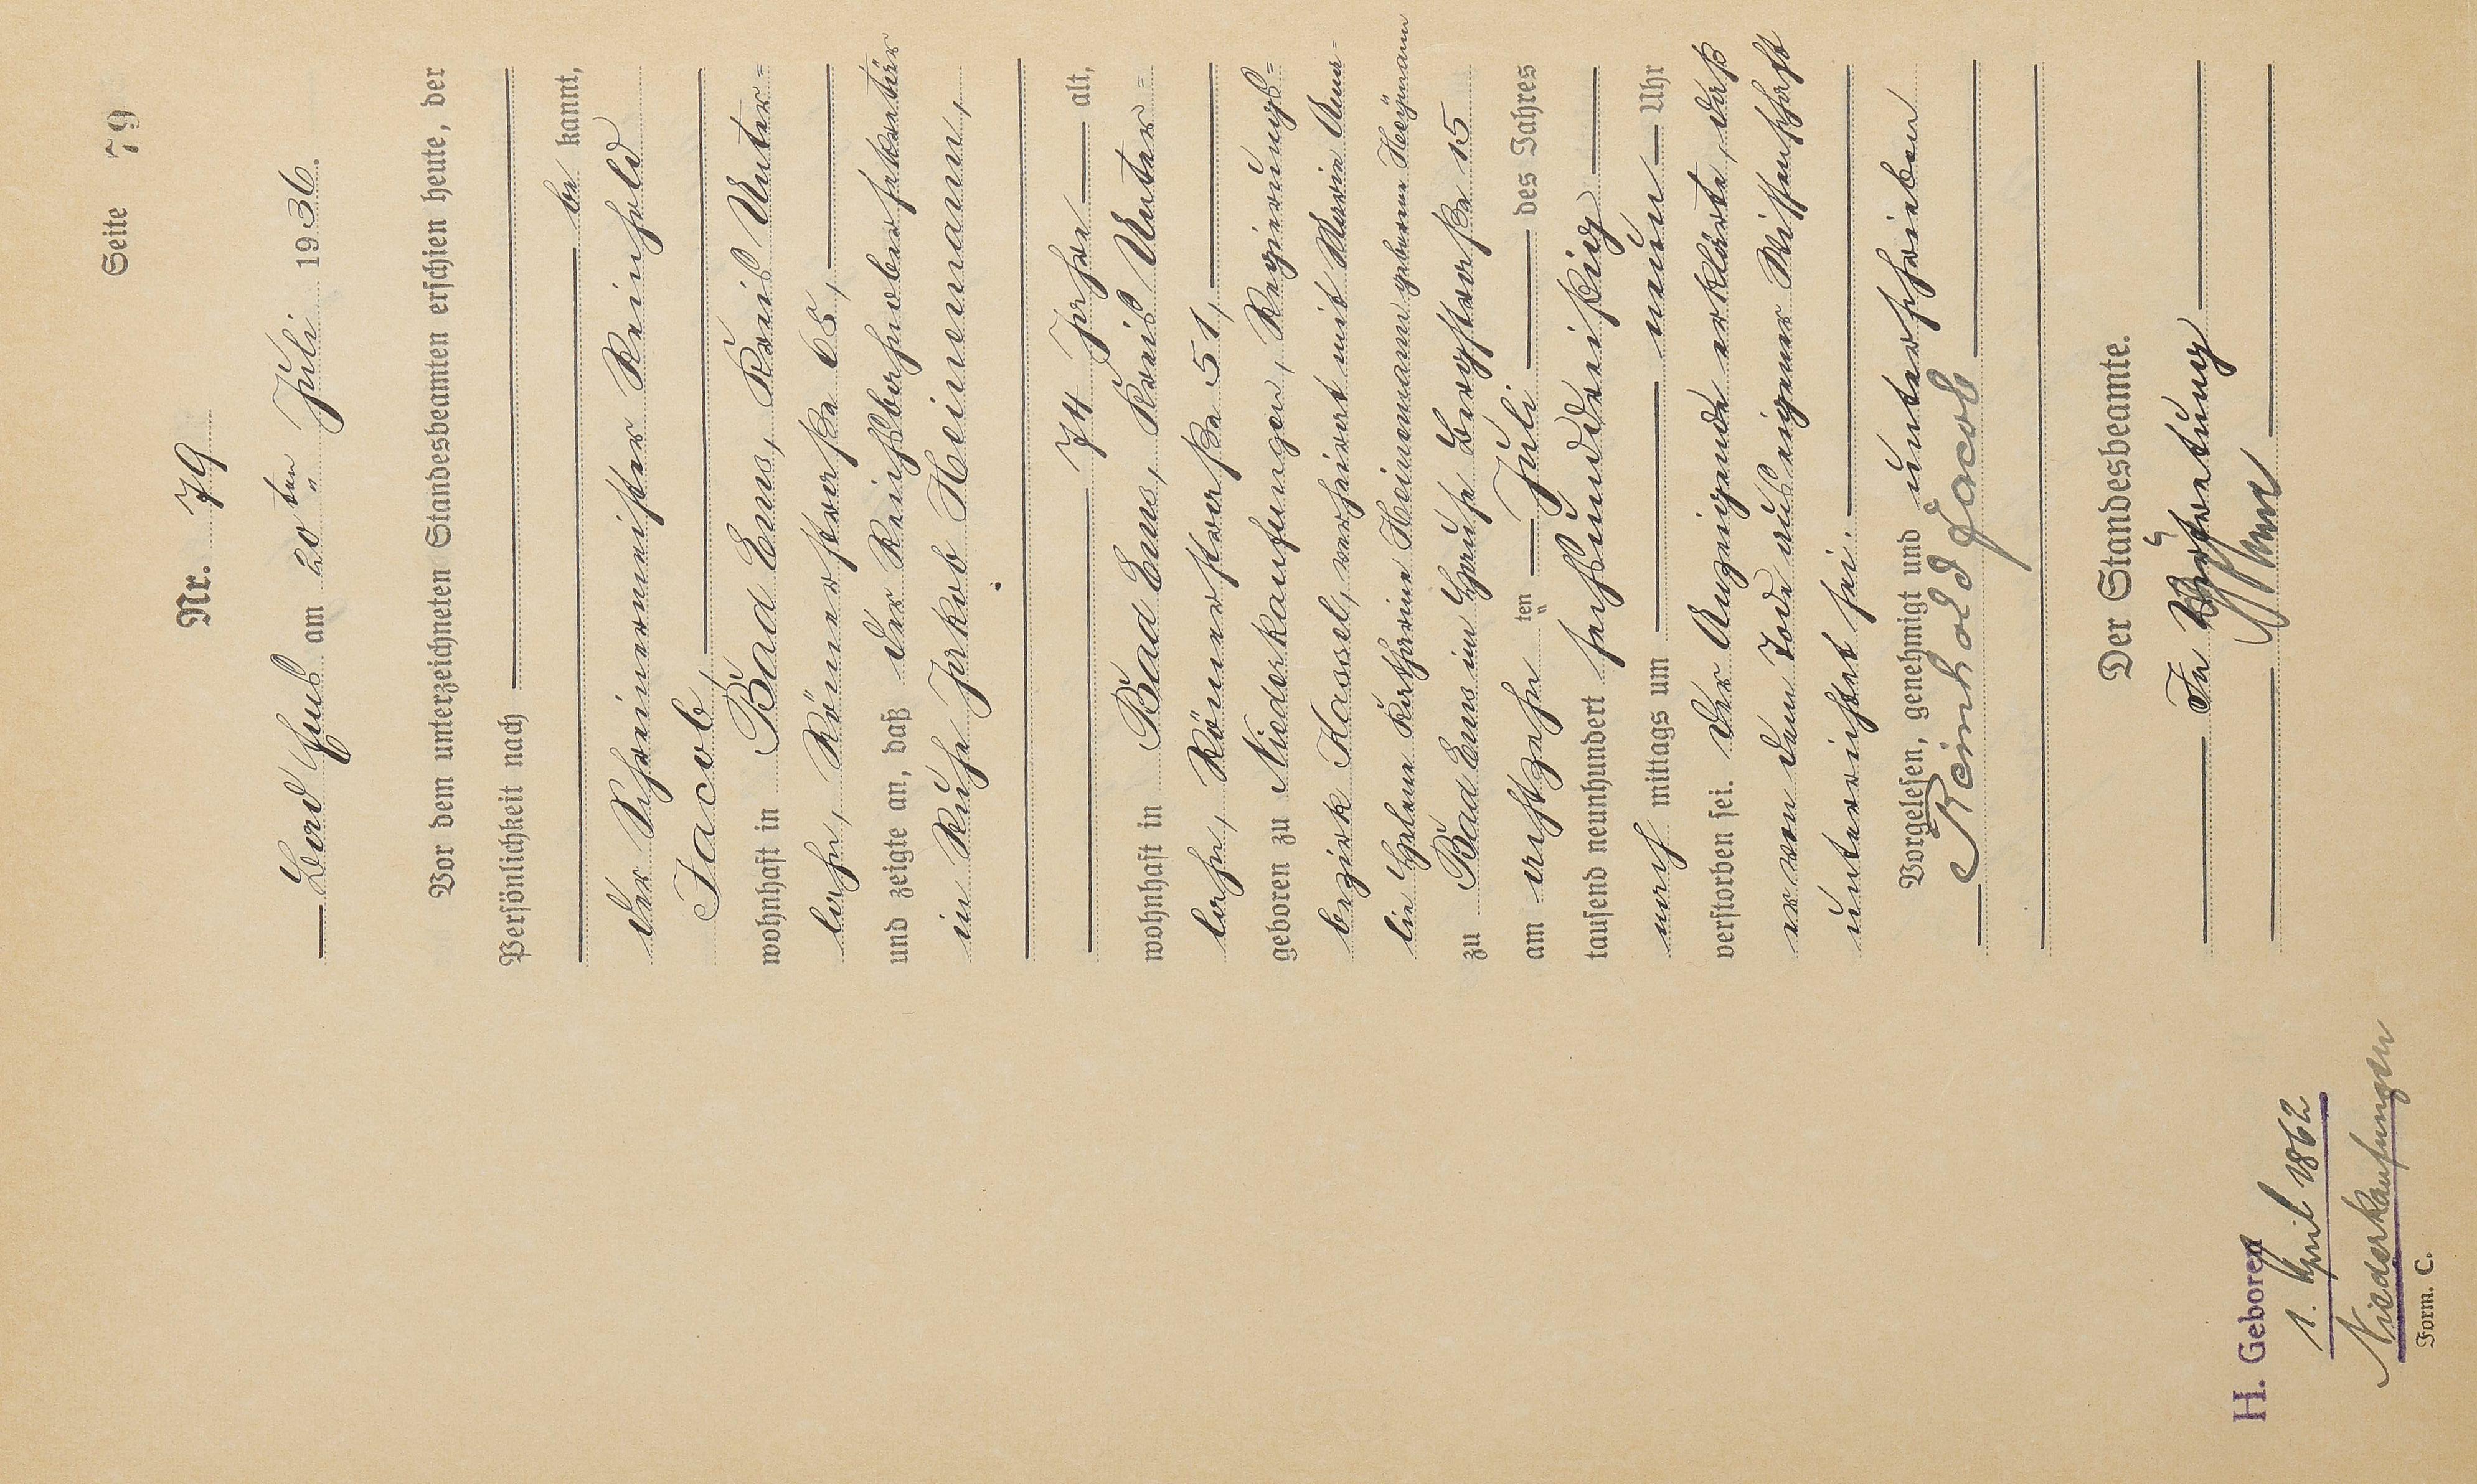 Seite 79
Nr. 79
Bad Ems am 20ten Juli 1936.
Vor dem unterzeichneten Standesbeamten erschien heute, der
Persönlichkeit nach
be kannt,
der Schreinermeister Reinhold
Jacob,
wohnhaft in Bad Ems, Kreis Unter=
lahn, Römerstraße 65,
und zeigte an, daß der Reichsbahnobersekretär
in Ruhe Jakob Heinemann,
74 Jahre alt,
wohnhaft in Bad Ems, Kreis Unter=
lahn, Römerstraße 51,
geboren zu Niederkaufungen, Regierungs=
bezirk Kassel, verheiratet mit Maria Ama=
lie Helene Katharine Heinemann geborene Heymann
zu Bad Ems im Hause Bergstraße 15
am achtzehn ten Juli des Jahres
tausend neunhundert sechsunddreißig
nach mittags um neun Uhr
verstorben sei. Der Anzeigende erklärte, daß
er von dem Tode aus eigener Wissenschaft
unterrichtet sei.
Vorgelesen, genehmigt und unterschrieben
Reinhold Jacob
Der Standesbeamte.
In Vertretung
H. Geboren
1. April 1862
Niederkaufungen
Form. C.